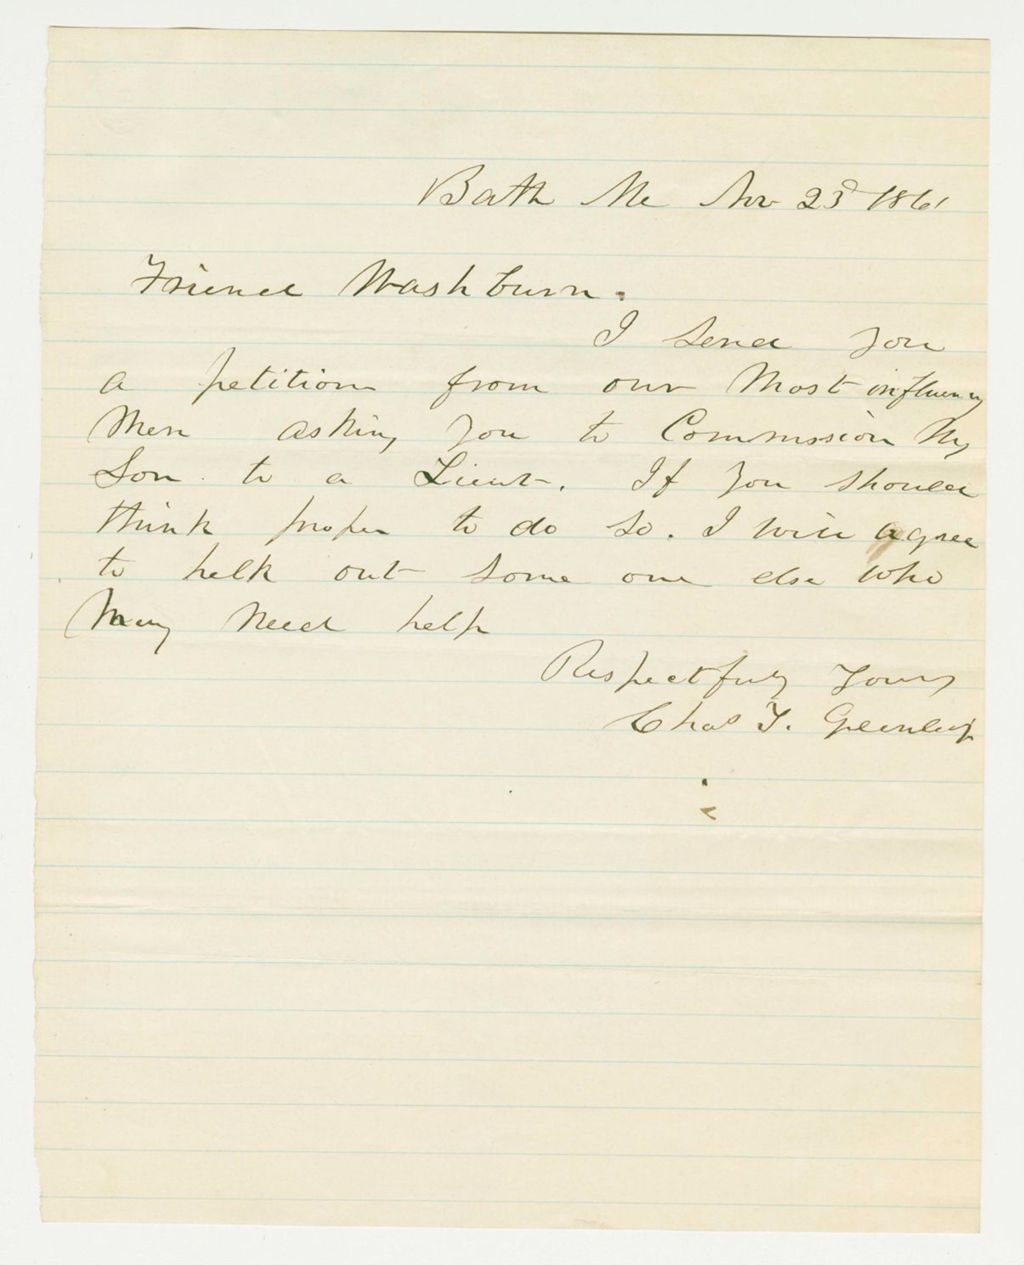 Bath Me Nov 23d 1861
Friend Washburn.
I send you
a petition from our Most
Men asking you to Commission My
Son to a Lieut. If you should
think proper to do so. I will agree
to helk out some one else who
May Need help
Respectfuly Yours
Chas T. Greenleaf